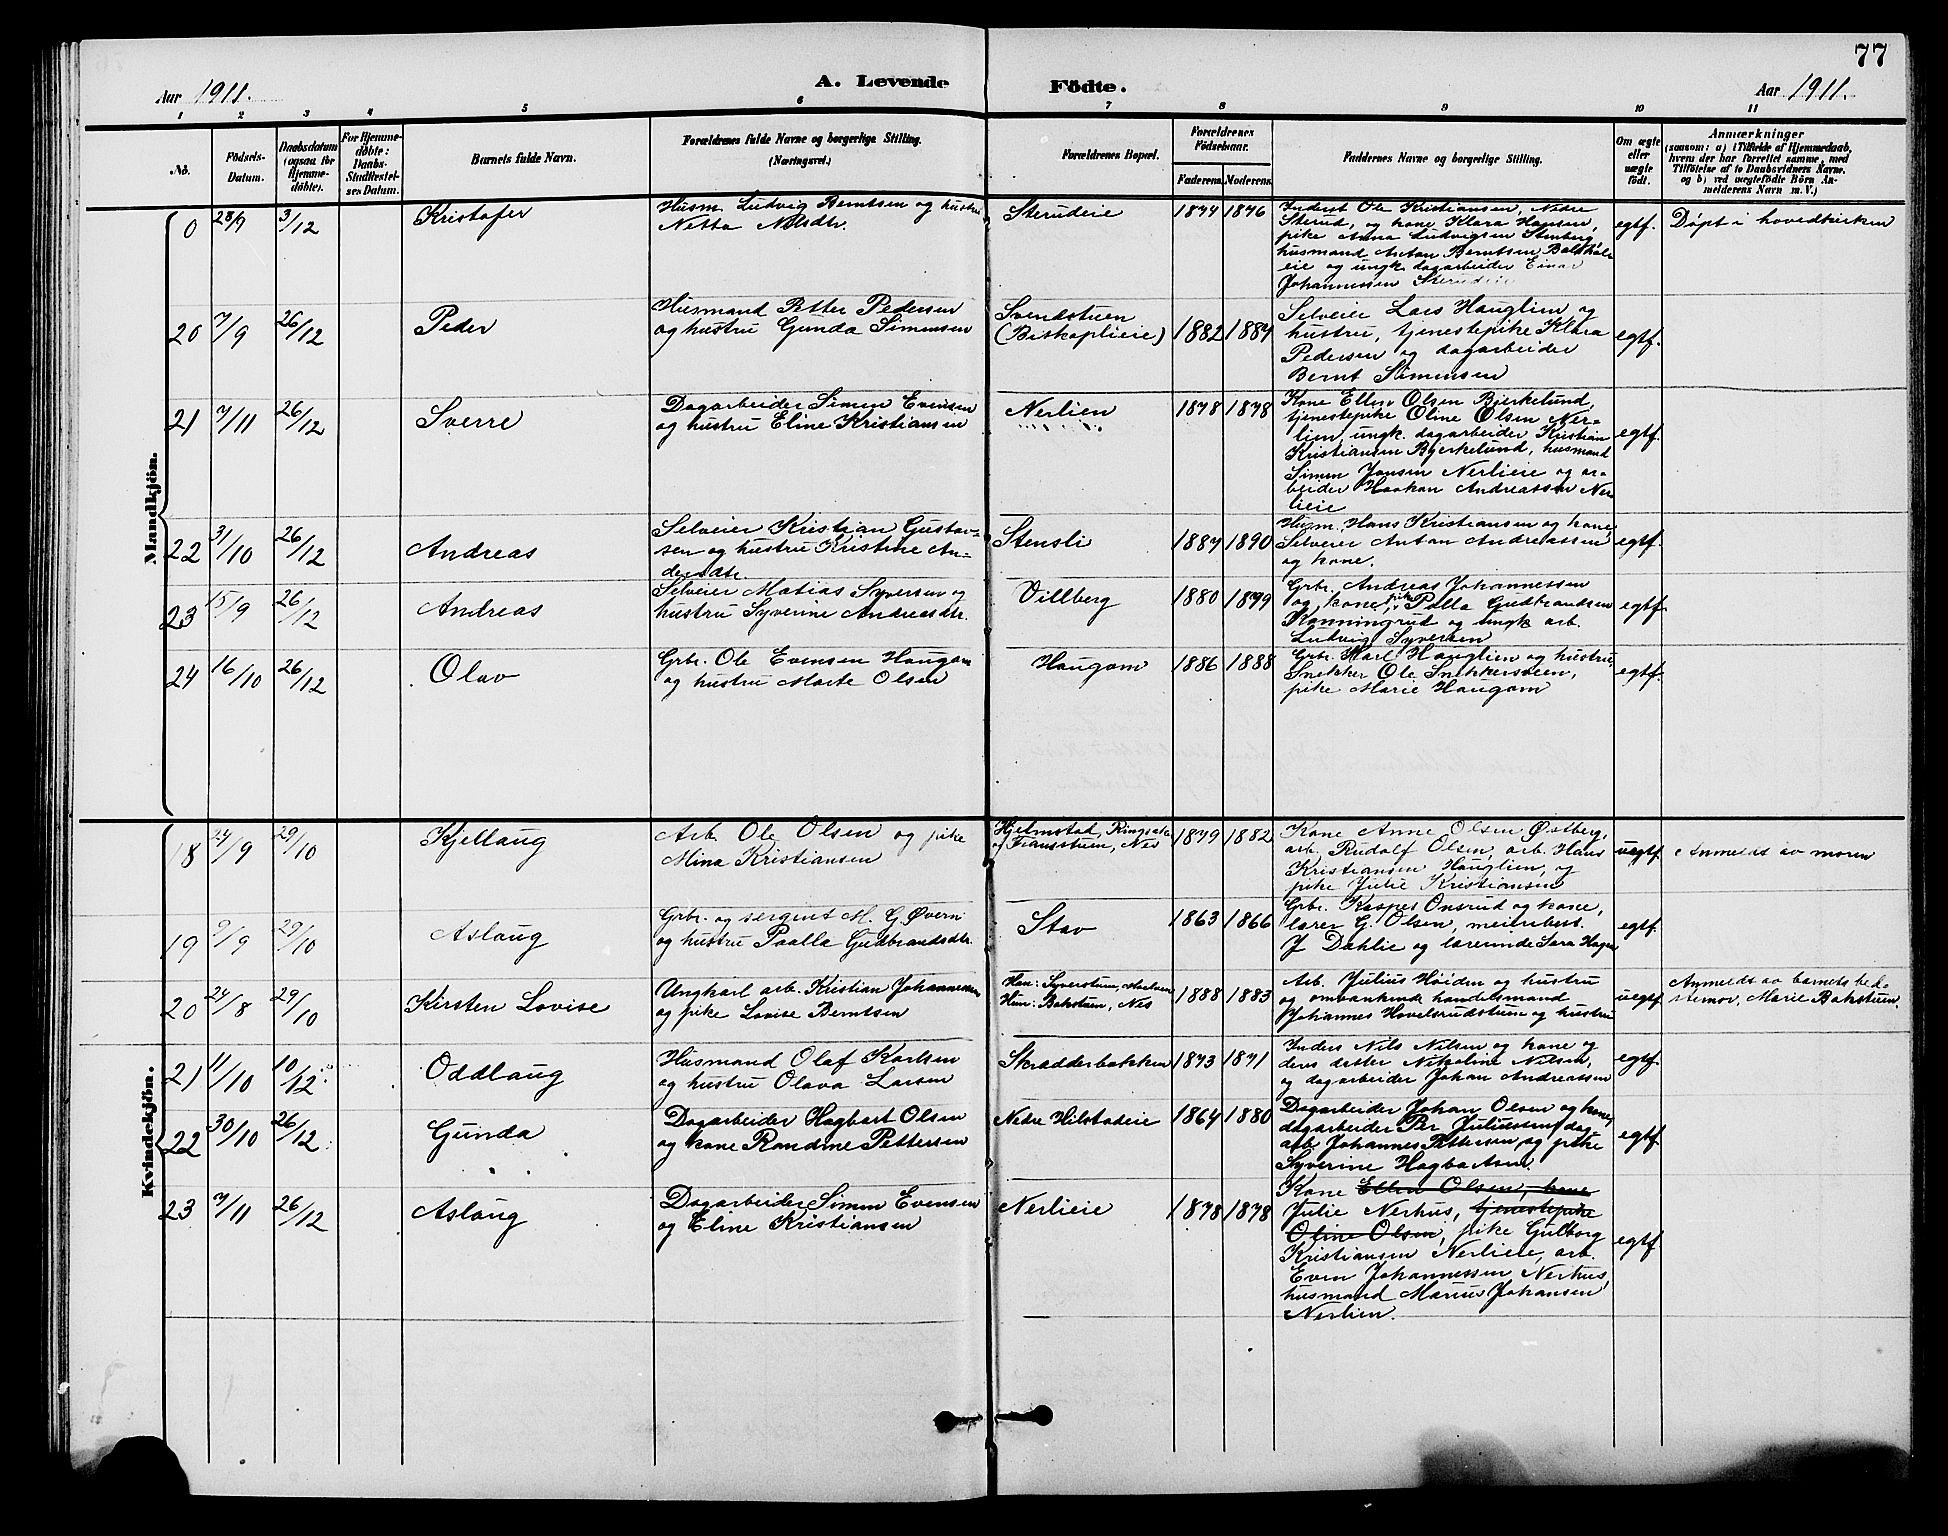 77
Aar 1911.
A. Levende Födte.
Aar 1911.
1 2 3 4 5 6 7 8 9 10 11
No.
Födsels-
Datum.
Daabsdatum
(ogsaa for
Hjemme-
döbte).
For Hjemme-
döbte:
Daabs-
Stadfæstel-
ses Datum.
Barnets fulde Navn.
Forældrenes fulde Navne og borgerlige Stilling.
(Næringsvei.)
Forældrenes Bopæl.
Forældrenes
Födselsaar.
Faderens. Moderens.
Faddernes Navne og borgerlige Stilling.
Om ægte
eller
uægte
födt.
Anmærkninger
(saasom: a) i Tilfælde af Hjemmedaab,
hvem der har forrettet samme, med
Tilföielse af to Daabsvidners Navne.
og b) ved uægtefödte Börn An-
melderens Navn m. V.)
Mandkjön.
0 28/9 3/12
Kristofer
Husm. Ludvig Berntsen og hustru
Netta Nilsdtr.
Sterudeie
1874 1876
Inderst Ole Kristiansen, Nedre
Sterud, og kone Klara Hansen,
pike Anna Ludvigsen Stenberg,
husmand Anton Berntsen
eie og ungk. dagarbeider Einar
Johannessen Sterudeie
egtf.
Døpt i hovedkirken
20 7/9 26/12
Peder
Husmand Petter Pedersen
og hustru Gunda Simensen
Svendstuen
(Biskoplieie)
1882 1884
Selveier Lars Hauglien og
hustru, tjenestepike Klara
Pedersen og dagarbeider
Bernt Simensen
egtf.
21 7/11 26/12
Sverre
Dagarbeider Simen Evensen
og hustru Eline Kristiansen
Nerlien
1878 1878
Kone Ellen Olsen Bjerkelund,
tjenestepike Oline Olsen Ner-
lien, ungk. dagarbeider Kristian
Kristiansen Bjerkelund, husmand
Simen Jonsen Nerlieie og ar-
beider Haakon Andreassen Ner
lieie
egtf.
22 31/10 26/12
Andreas
Selveier Kristian Gustav-
sen og hustru Kristine An-
dersdtr.
Stensli
1884 1890
Husm. Hans Kristiansen og kone,
Selveier Anton Andreassen
og kone.
egtf.
23 15/9 26/12
Andreas
Selveier Matias Syversen og
hustru Syverine Andreasdtr.
Dillberg
1880 1879
Grbr. Andreas Johannessen
og kone, pike Palla Gudbrandsen
Rønningrud og ungk. arb.
Ludvig Syversen
egtf.
24 16/10 26/12
Olav
Grbr. Ole Evensen Haugom
og hustru Marte Olsen
Haugom
1886 1888
Grbr. Karl Hauglien og hustru,
Snekker Ole Snekkersveen,
pike Marie Haugom
egtf.
Kvindekjön.
18 24/9 29/10
Kjellaug
Arb. Ole Olsen og pike
Mina Kristiansen
Hjelmstad, Ringsaker
og Fransstuen, Nes
1879 1882
Kone Anne Olsen Østberg,
arb. Rudolf Olsen, arb. Hans
Kristiansen Hauglien, og
pike Julie Kristiansen
uegtf.
Anmeldt av moren
19 9/9 29/10
Aslaug
Grbr. og sergent M. G. Øvern
og hustru Paalla Gudbrandsdtr.
Stav
1863 1866
Grbr. Kasper Onsrud og kone,
lærer G. Olsen, meieribest.
J Dahlie og lærerinde Sara Hagen
egtf.
20 24/8 29/10
Kirsten Lovise
Ungkarl arb. Kristian Johannessen
og pike Lovise Berntsen
Han: Syverstuen,
Hun: Bakstuen, Nes
1888 1883
Arb. Julius Høiden og hustru
og omvankende handelsmand
Johannes Hovelsrudstuen og hustru
uegtf.
Anmeldt av barnets bed-
stemor, Marie Bakstuen.
21 11/10 10/12
Oddlaug
Husmand Olaf Karlsen
og hustru Olava Larsen
Skrædderbakken
1873 1871
Inders Nils Nilsen og kone og
deres datter Nikoline Nilsen,
og dagarbeider Johan Andreassen
egtf.
22 30/10 26/12
Gunda
Dagarbeider Hagbart Olsen
og kone Randine Pettersen
Nedre Hilstadeie
1864 1880
Dagarbeider Johan Olsen og kone,
dagarbeider Per Juliussen, dag-
arb. Johannes Pettersen og pike
Syverine Hagbartsen.
egtf.
23 7/11 26/12
Aslaug
Dagarbeider Simen Evensen
og Eline Kristiansen
Nerlieie
1878 1878
Kone Ellen Olsen, kone
Julie Nerhus, tjenestepike
Oline Olsen, pike Gulborg
Kristiansen Nerlieie, arb.
Even Johannessen Nerhus,
husmand Marius Johansen
Nerlien.
egtf.